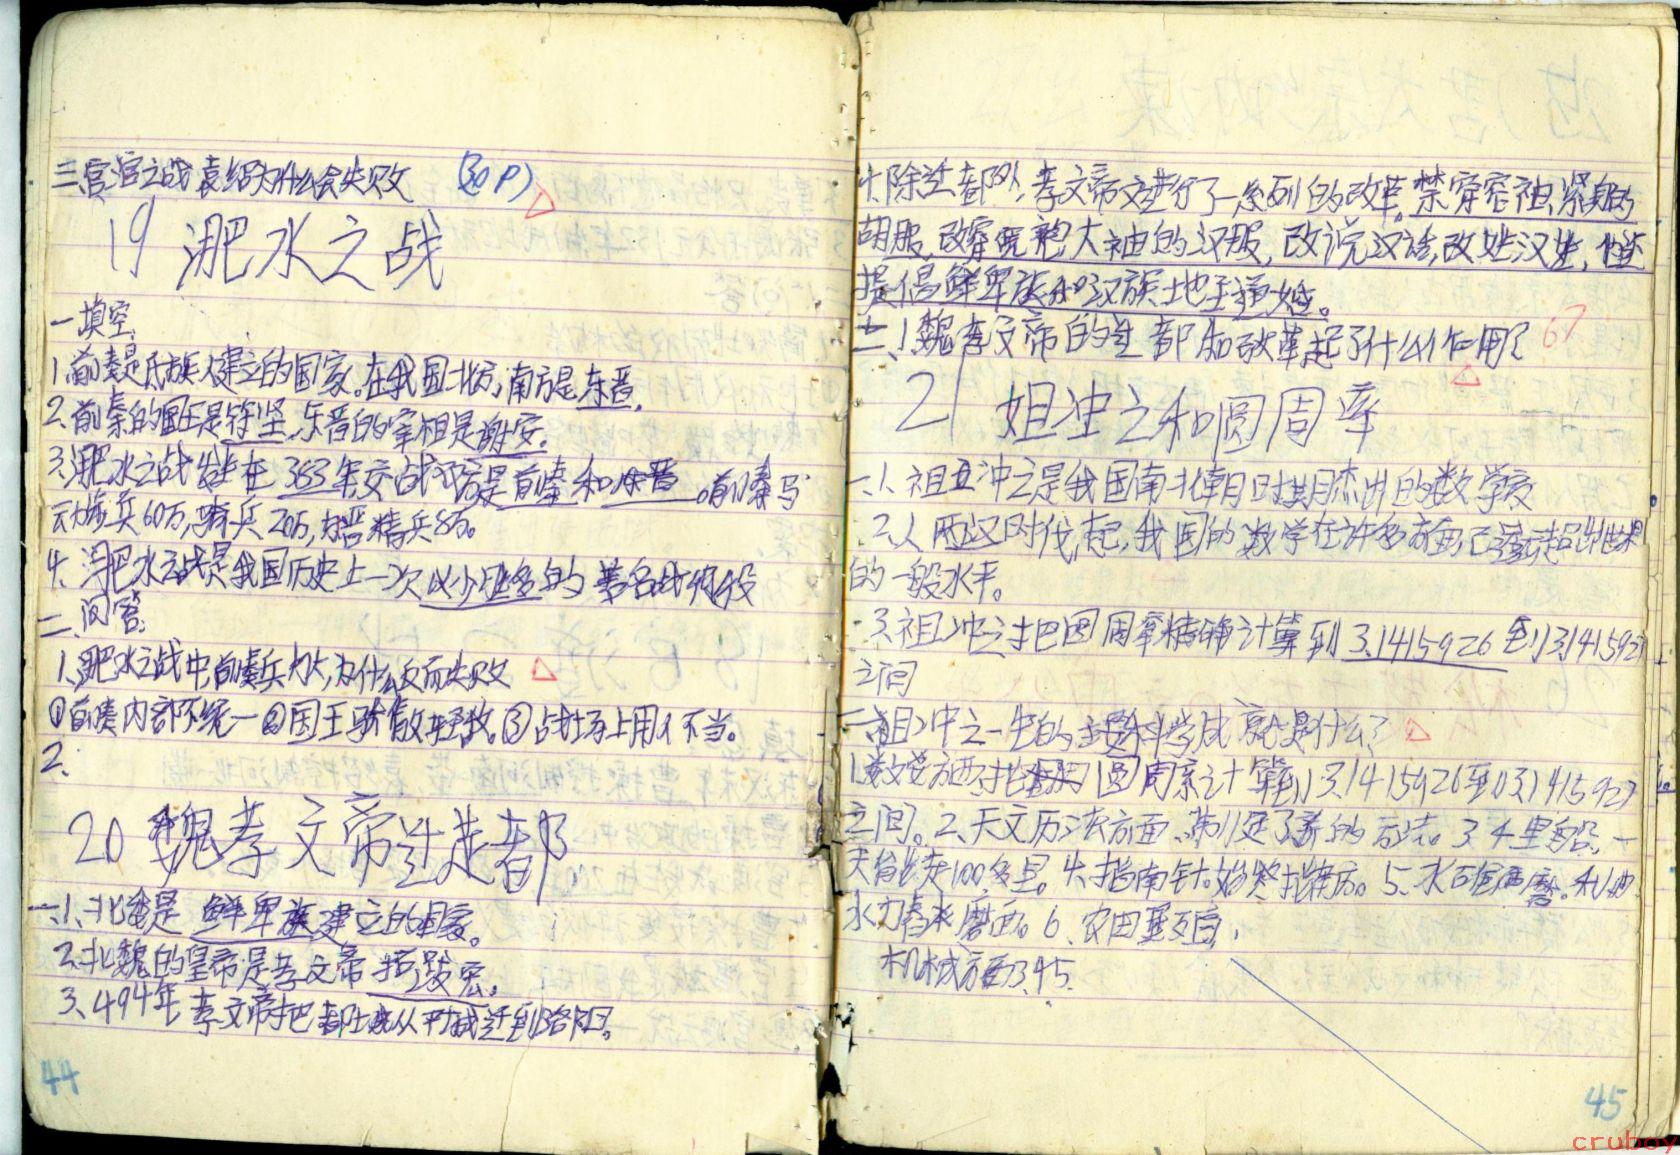 三、官渡之战袁绍为什么会失败 (30P)
19 淝水之战
一 填空.
1.前秦是氐族人建立的国家。在我国北方,南方是东晋.
2.前秦的国王是符坚.东晋的宰相是谢安.
3.淝水之战发生在 383年交战双方是前秦和东晋。前秦
兵60万,骑兵20万,精兵8万。
4. 淝水之战是我国历史上一次以少胜多的著名战役
二、问答:
1.淝水之战中前秦兵力大,为什么反而失败
①前秦内部不统一②国王骄傲轻敌③战场上用人不当。
2.
20 魏孝文帝迁都
一、1.北魏是 鲜卑族建立的国家。
2.北魏的皇帝是孝文帝拓跋宏。
3、494年 孝文帝把都城从平城迁到洛阳。
44
4.除迁都外,孝文帝又进行了一系列的改革。禁穿窄袖、紧身的
胡服,改穿宽袍大袖的汉服,改说汉话,改姓汉姓,
提倡鲜卑族和汉族地主通婚。
二、1.魏孝文帝的迁都和改革起了什么作用? 67
21 姐冲之和圆周率
一、1.祖冲之是我国南北朝时期杰出的数学家
2.从两汉时代起,我国的数学在许多方面已经远超出世界
的一般水平。
3.祖冲之把圆周率精确计算到3.1415926至3.1415927
之间
二、祖冲之一生的主要科学成就是什么?
1.数学方面:把圆周率计算到3.1415926至3.1415927
之间。2.天文历法方面、 的方法。3.千里船,一
天能走100多里。4.指南针。 5.水碓磨。利用
水力舂米磨面。6、农田
机械方面3.4.5.
45
cruboy